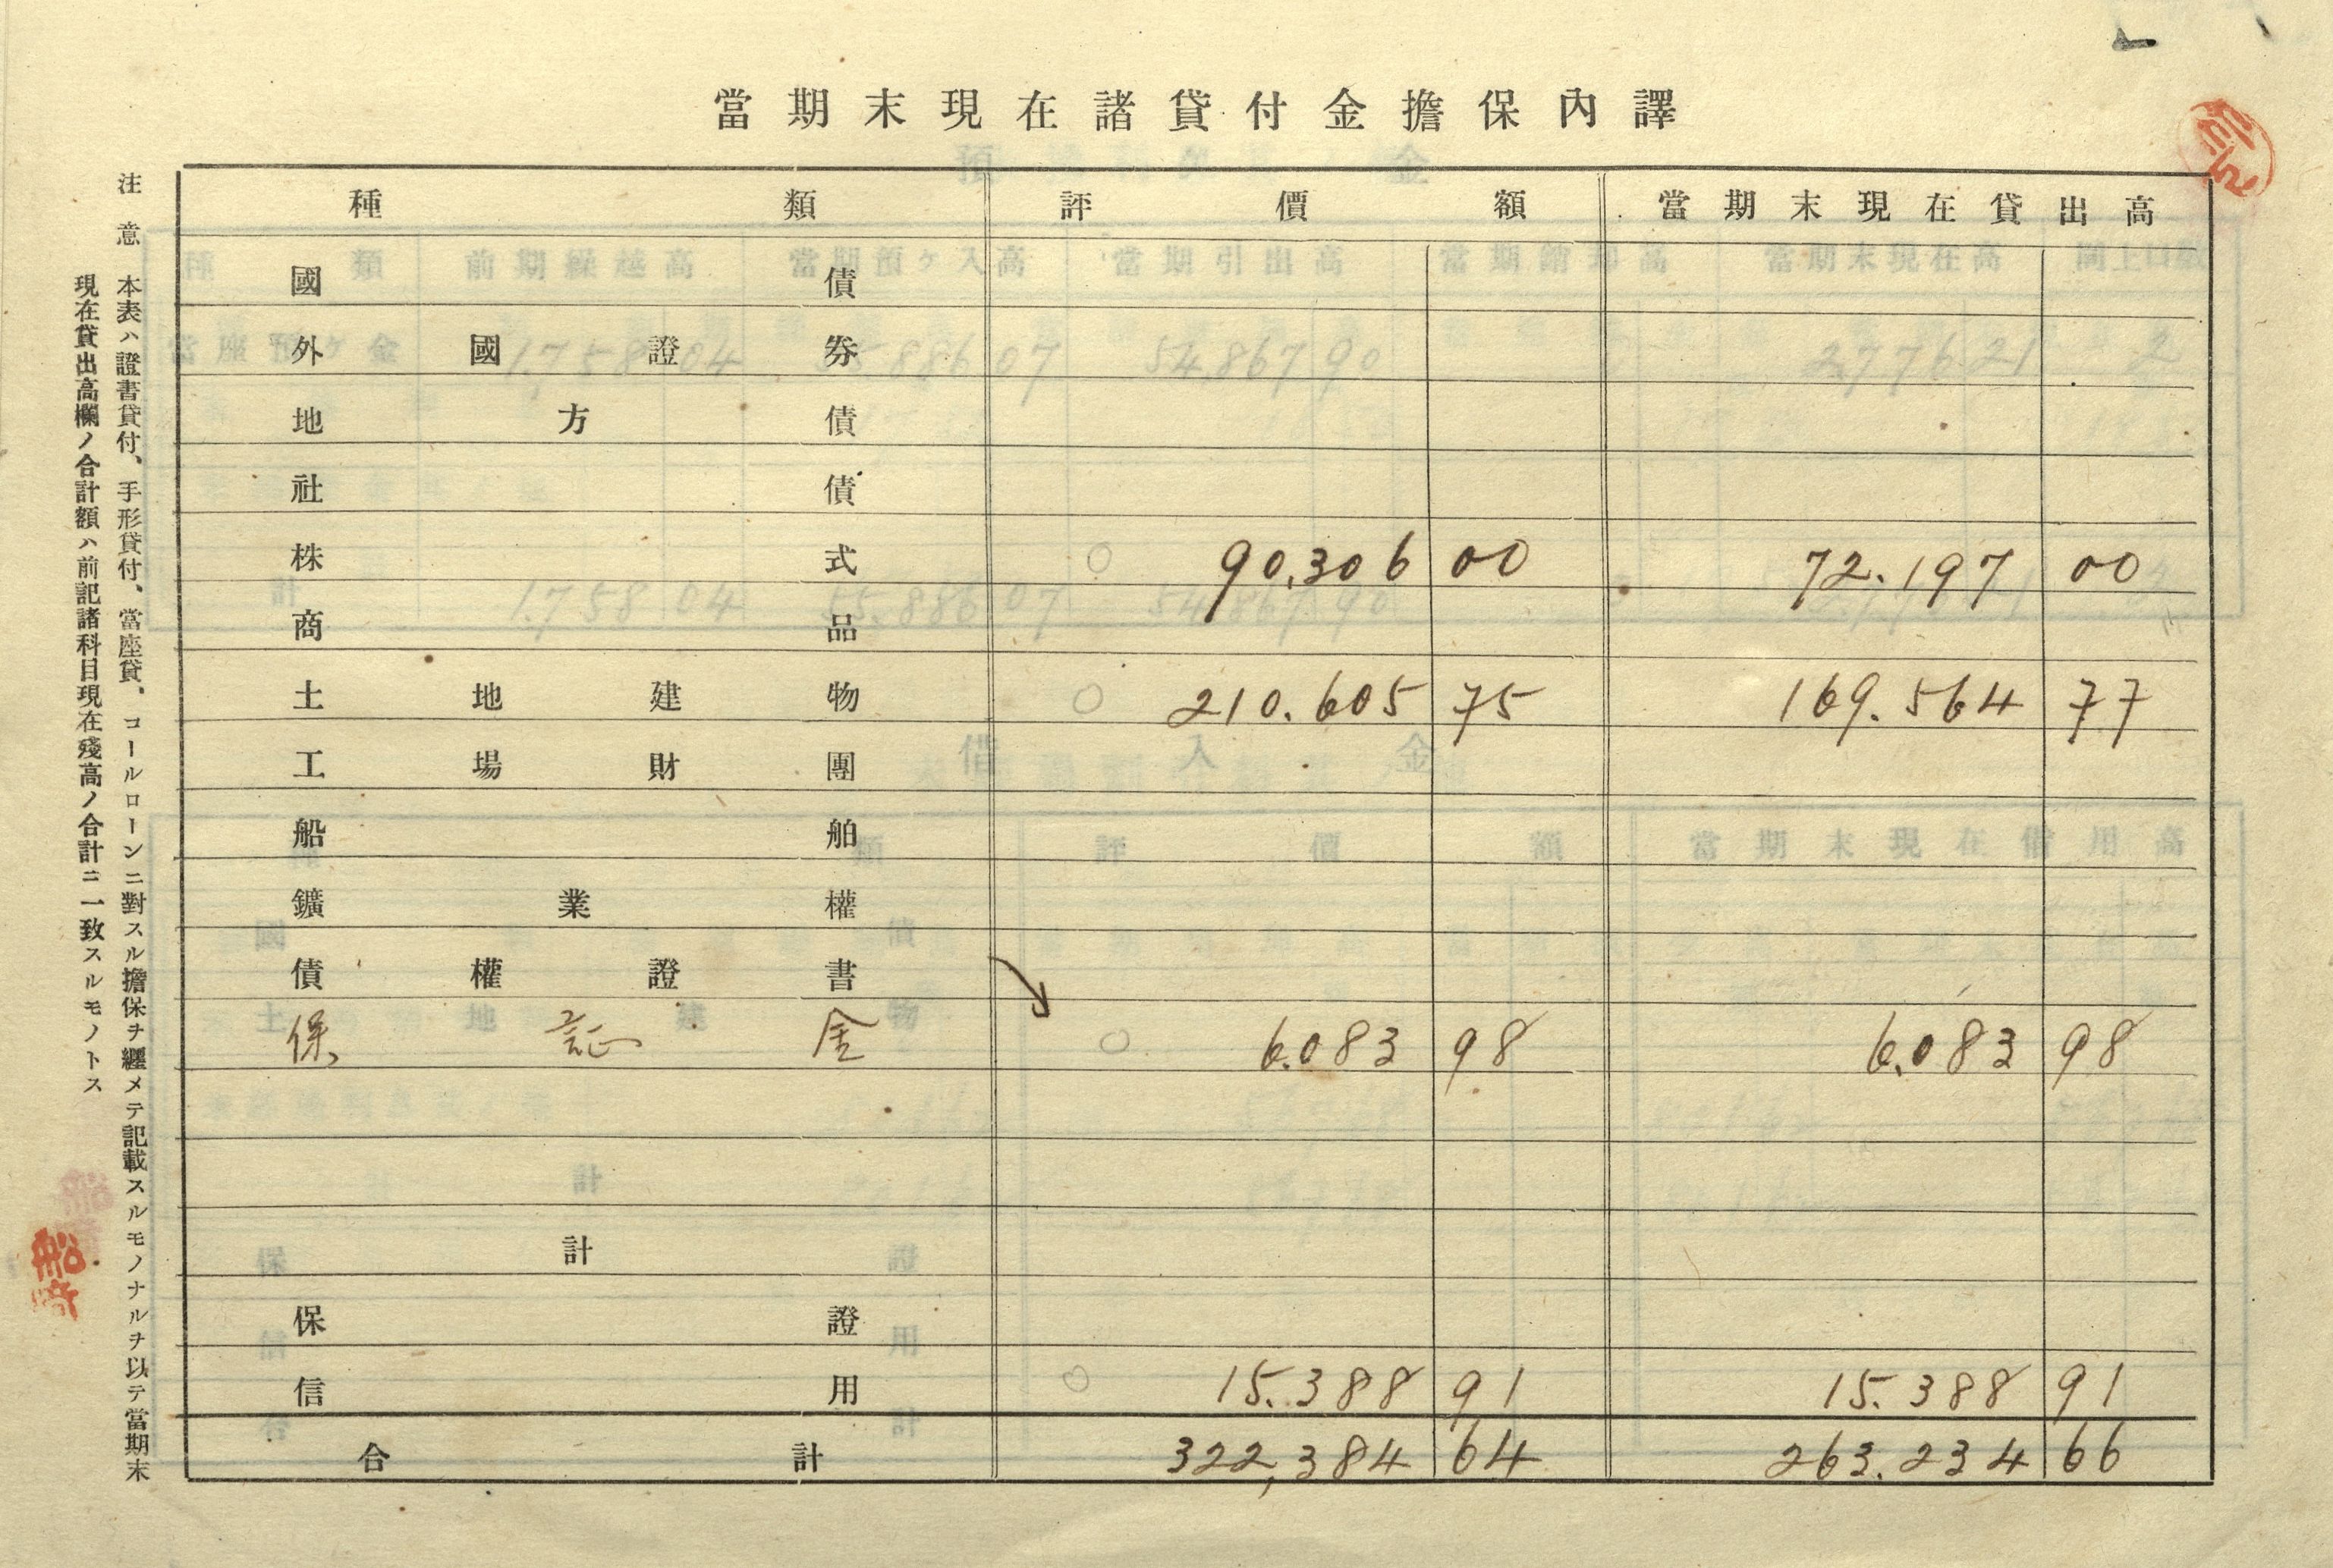 當期末現在諸貸付金擔保內譯
種類 評價額 當期末現在貸出高
國債
外國證券
地方債
社債
株式 90,306 00 72.197 00
商品
土地建物 210.605 75 169.564 77
工場財團
船舶
鑛業權
債權證書
保証金 6.083 98 6.083 98
計
保證
信用 15.388 91 15.388 91
合計 322,384 64 263.234 66
注意 本表ハ證書貸付、手形貸付、當座貸、コールローンニ對スル擔保ヲ纒メテ記載スルモノナルヲ以テ當期末
現在貸出高欄ノ合計額ハ前記諸科目現在殘高ノ合計ニ一致スルモノトス